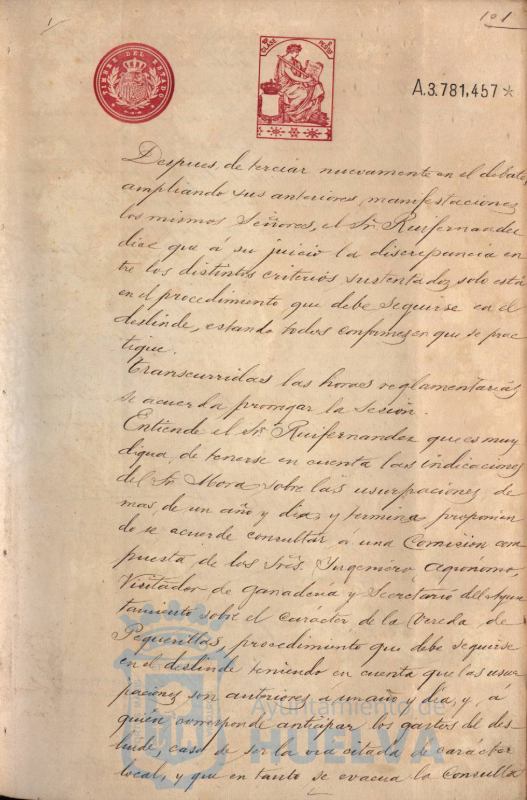 101
TIMBRE DEL ESTADO
CLASE
PESETAS
A.3.781,457*
Despues, de terciar nuevamente en el debate,
ampliando sus anteriores, manifestaciones
los mismos Señores, el Sr. Ruifernandez
dice que á su juicio la discrepancia en
tre los distintos criterios sustentados solo está
en el procedimiento que debe seguirse en el
deslinde, estando todos conformes en que se prac
tique.
Transcurridas las horas reglamentarias
se acuerda prorrogar la sesión.
Entiende el Sr. Ruifernandez que es muy
digna de tenerse en cuenta las indicaciones
del Sr. Mora sobre las usurpaciones de
mas de un año y dia, y termina proponien
do se acuerde consultar á una Comisión com
puesta de los Sres. Ingeniero Agronomo,
Visitador de Ganadería y Secretario del Ayun
tamiento sobre el carácter de la Vereda de
Peguerillas, procedimiento que debe seguirse
en el deslinde teniendo en cuenta que las usur
paciones son anteriores a un año y dia, y á
quien corresponde anticipar los gastos del des-
linde, caso de ser la via citada de carácter
local, y que en tanto se evacua la Consulta
Ayuntamiento de
HUELVA